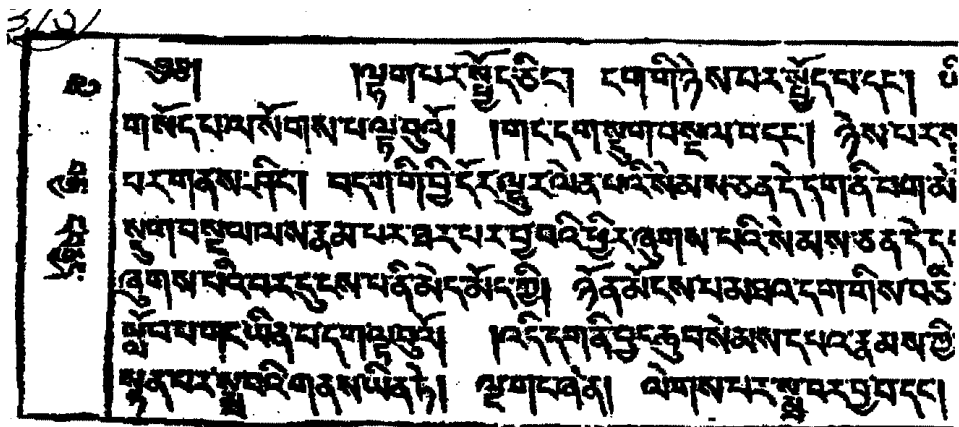 ༄༅། །ལྷག་པར་སྤྱོད་ཅིང༌། ངག་གི་ཉེས་པར་སྤྱོད་པ་དང༌།
གསོད་པ་ལ་སོགས་པ་ལྟ་བུའོ། །གང་དག་སྡུག་བསྔལ་བ་དང༌། ཉེས་པར་
པར་གནས་ཤིང༌། བདག་གི་བྱི་དོར་ལྷུར་ལེན་པའི་སེམས་ཅན་དེ་དག་ནི་བག་མེ
སྡུག་བསྔལ་ལས་རྣམ་པར་ཐར་པར་བྱ་བའི་ཕྱིར་ཞུགས་པའི་སེམས་ཅན་དེ་ད
ཞུགས་པའི་བར་དུ་ངས་པ་ནི་མེད་མོད་ཀྱི། ཉོན་མོངས་པ་མཐའ་དག་གིས་བཅི
སློབ་པ་གང་ཡིན་པ་དག་ལྟ་བུའོ། །འདི་དག་ནི་བྱང་ཆུབ་སེམས་དཔའ་རྣམས་ཀྱི
སྟན་པར་སྨྲ་བའི་གནས་ཡིན་ཏེ། ལྔ་གང་ཞེ་ན། ལེགས་པར་སྨྲ་བར་བྱ་བ་དང༌།